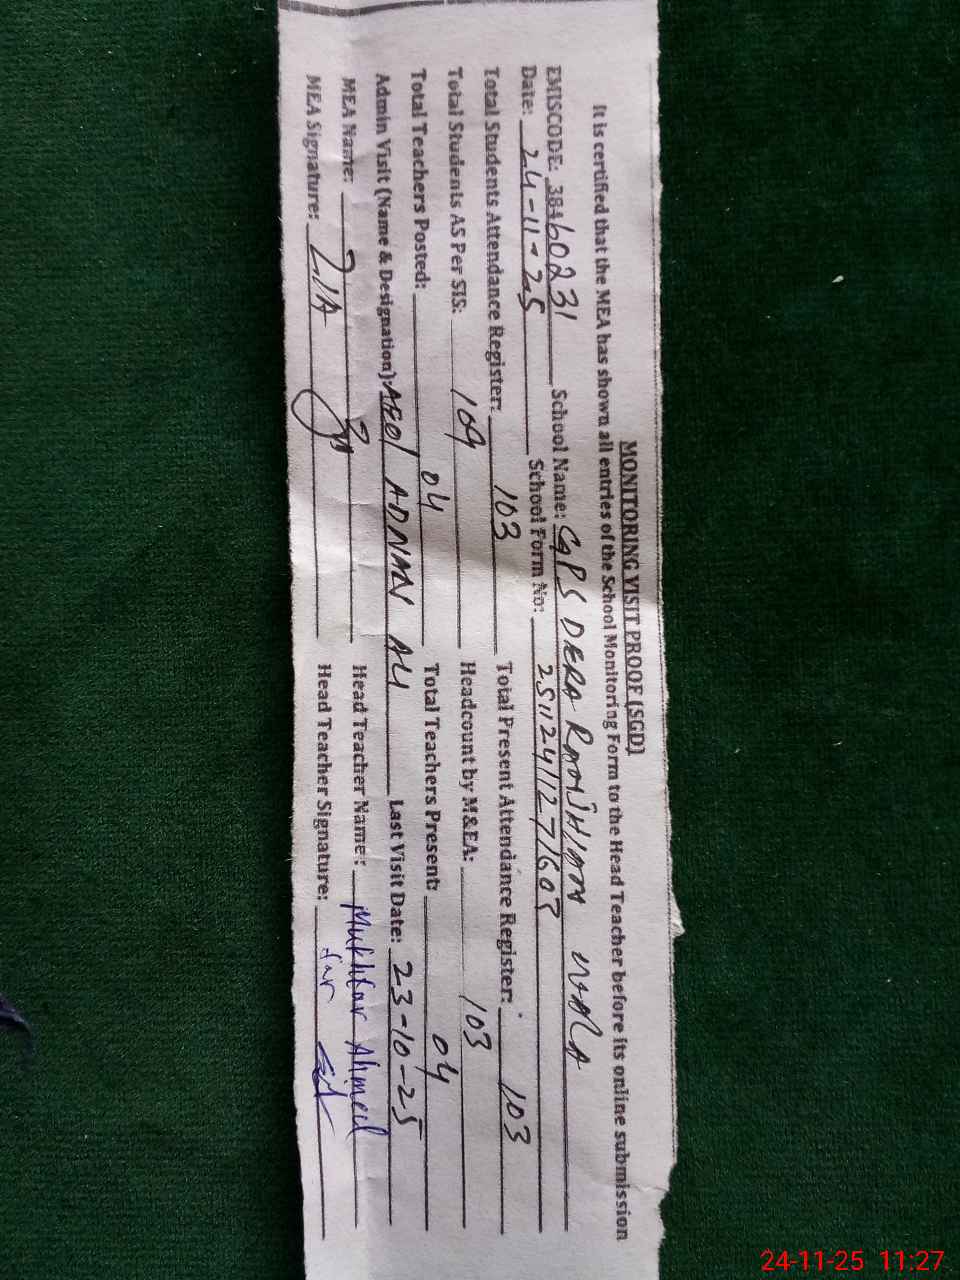 MONITORING VISIT PROOF (SGD)
It is certified that the MEA has shown all entries of the School Monitoring Form to the Head Teacher before its online submission
EMISCODE: 38460231 School Name: GPS DERA RANJHIAN WALA
Date: 24-11-25 School Form No:
Total Students Attendance Register: 103 Total Present Attendance Register: 103
Total Students AS Per SIS: 109 Headcount by M&EA: 103
Total Teachers Posted: 04 Total Teachers Present: 04
Admin Visit (Name & Designation): AEO/ ADNAN ALI Last Visit Date: 23-10-25
MEA Name: Head Teacher Name: Mukhtar Ahmed
MEA Signature: ZIA Head Teacher Signature:
24-11-25 11:27